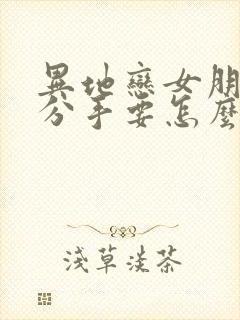 異地戀女朋
分手要怎麼
淺草淡茶